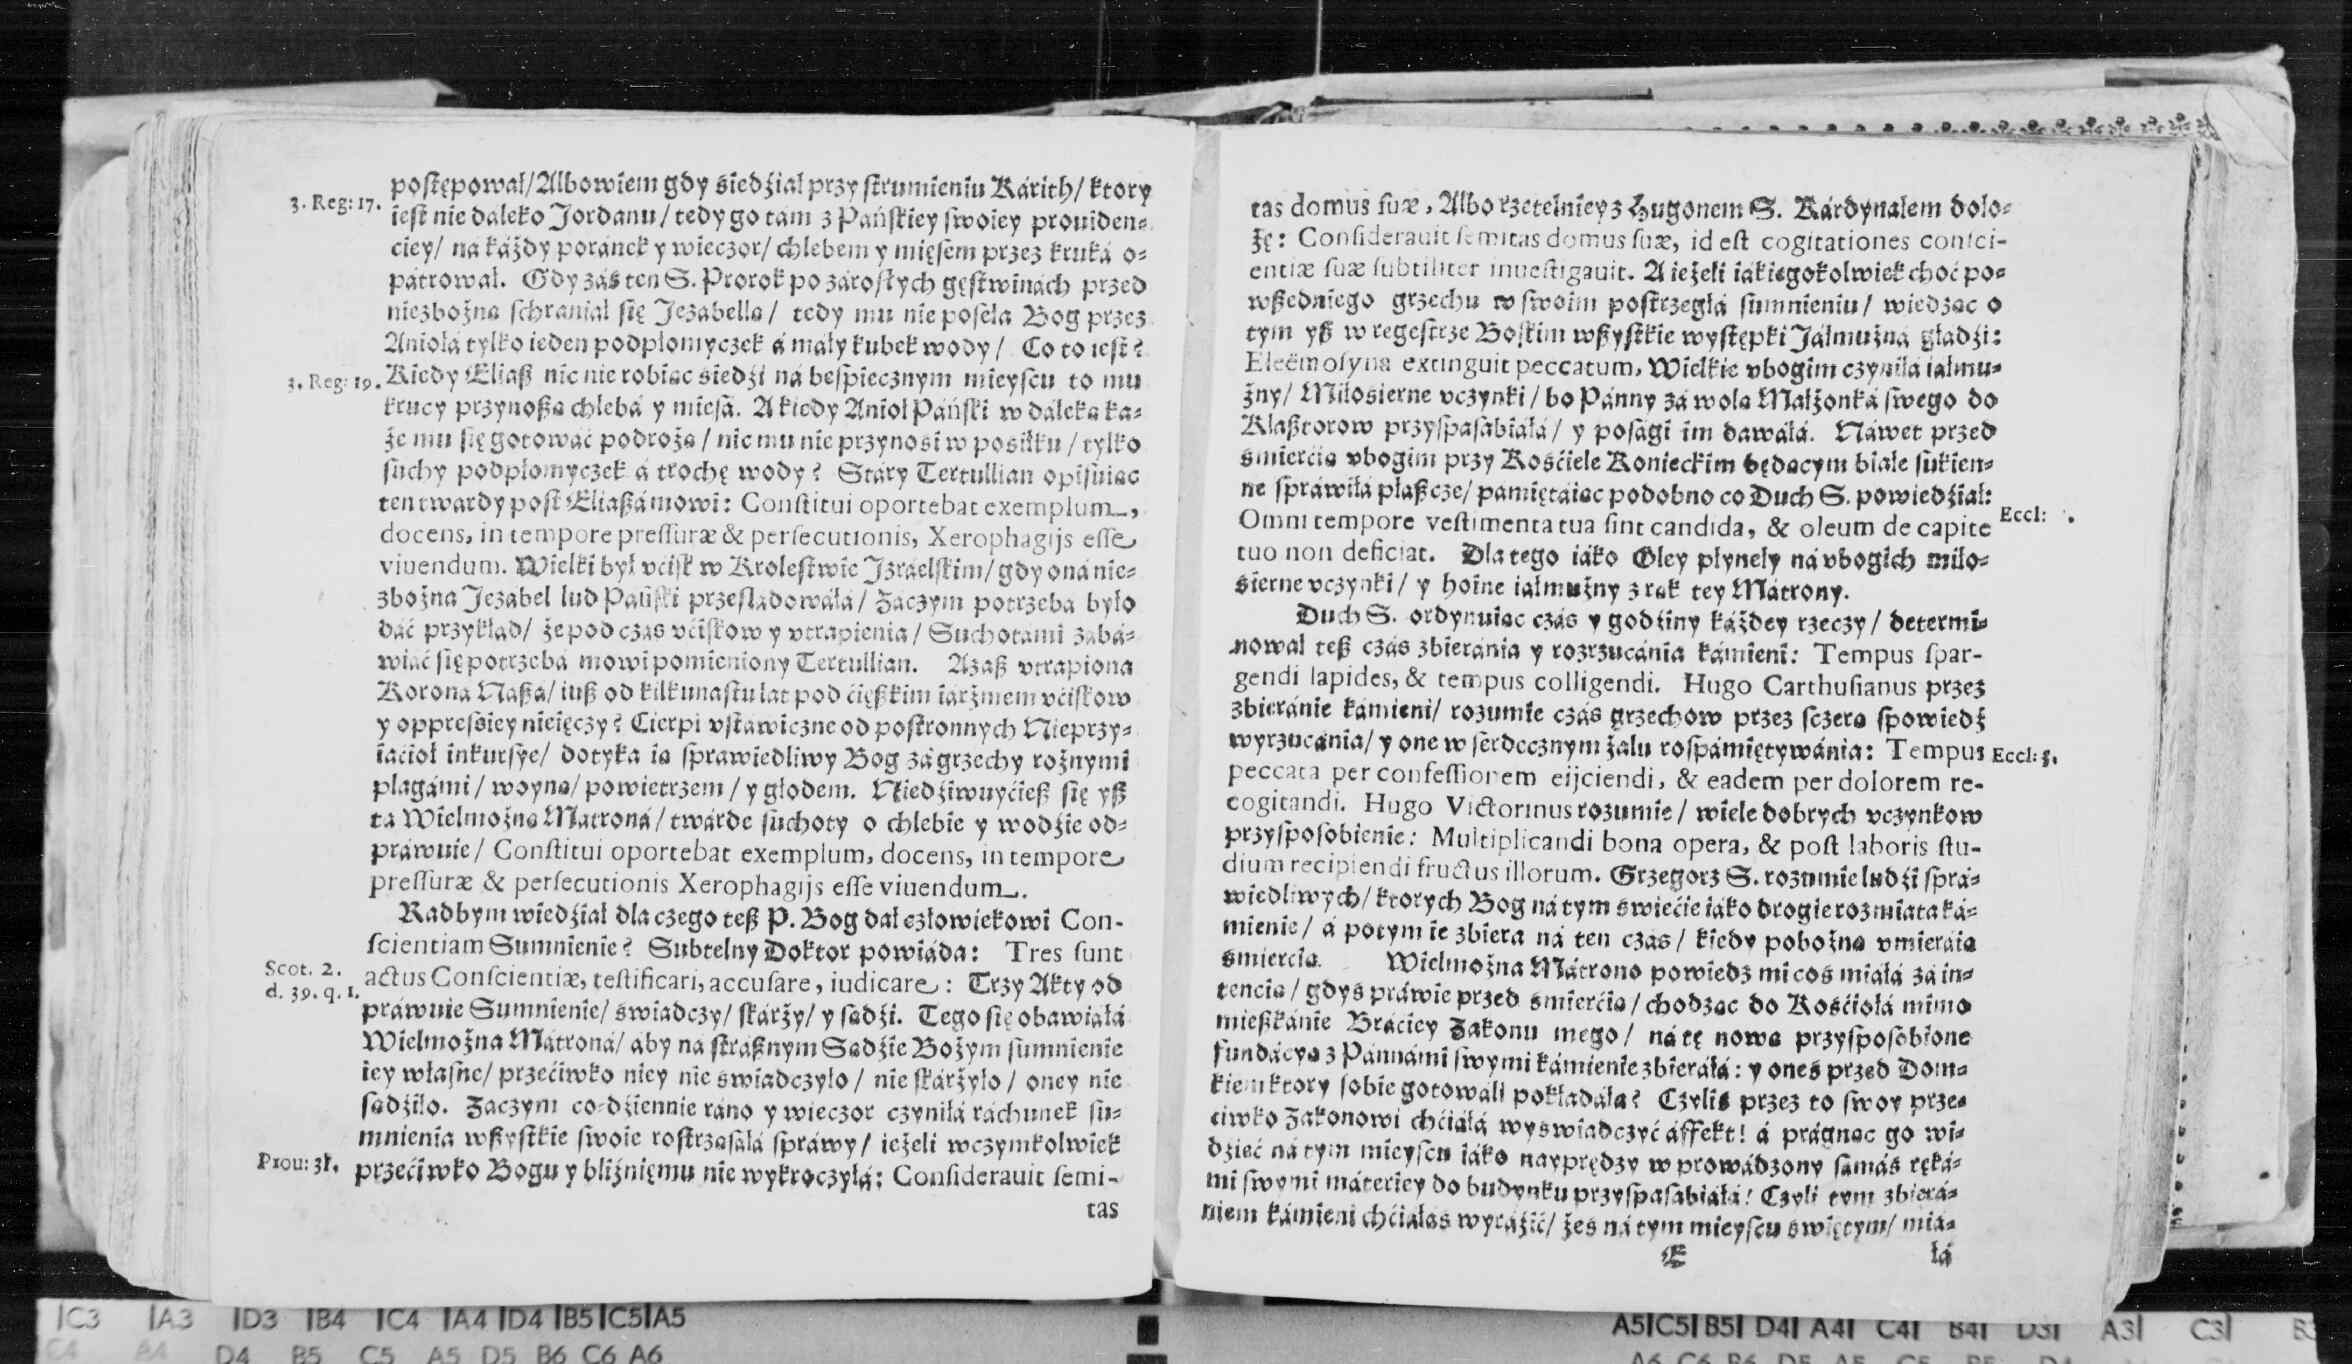 postępował/ Albowiem gdy śiedźiał przy strumieniu Kárith/ ktory
3. Reg: 17.
iest nie dáleko Jordanu/ tedy go tám z Páńskiey swoiey prouiden-
ciey/ ná káżdy poránek y wieczor/ chlebem y mięsem przez kruká o-
pátrował. Gdy záś ten S. Prorok po zárosłych gęstwinách przed
niezbożną schraniał się Jezabellą/ tedy mu nie poseła Bog przez
Aniołá tylko ieden podpłomyczek á mały kubek wody/ Co to iest?
3. Reg: 19.
Kiedy Eliaß nic nie robiąc śiedźi ná beśpiecznym mieyscu to mu
krucy przynoßą chlebá y mięsá. A kiedy Anioł Páński w dáleką ka-
że mu się gotowáć podrożą/ nic mu nie przynośi w pośiłku/ tylko
suchy podpłomyczek á trochę wody? Stáry Tertullian opisuiąc
ten twardy post Eliaßá mowi: Constitui oportebat exemplum,
docens, in tempore pressuræ & persecutionis, Xerophagijs esse
viuendum. Wielki był vćisk w Krolestwie Jzráelskim/ gdy oná nie-
zbożna Jezabel lud Páński prześladowáłá/ Záczym potrzebá było
dáć przykład/ że pod czás vćiskow y vtrapienia/ Suchotámi zábá-
wiáć się potrzebá mowi pomieniony Tertullian. Azaß vtrapiona
Korona Náßá/ iuß od kilkunastu lat pod ćięßkim iárzmem vćiskow
y oppressiey nieięczy? Cierpi vstáwiczne od postronnych Nieprzy-
iaćioł inkursye/ dotyka ią spráwiedliwy Bog zá grzechy rożnymi
plagámi/ woyną/ powietrzem/ y głodem. Niedźiwuyćieß się yß
tá Wielmożna Mátroná/ twárde suchoty o chlebie y wodźie od-
práwuie/ Constitui oportebat exemplum, docens, in tempore
pressuræ & persecutionis Xerophagijs esse viuendum.
Radbym wiedźiał dla czego teß P. Bog dał człowiekowi Con-
scientiam Sumnienie? Subtelny Doktor powiáda: Tres sunt
Scot. 2.
d. 39. q. 1.
actus Conscientiæ, testificari, accusare, iudicare: Trzy Akty od
práwuie Sumnienie/ świadczy/ skárży/ y sądźi. Tego się obawiáłá
Wielmożna Mátroná/ áby ná stráßnym Sądźie Bożym sumnienie
iey własne/ przećiwko niey nie świadczyło/ nie skárżyło/ oney nie
sądźiło. Záczym co-dźiennie ráno y wieczor czyniłá ráchunek su-
mnienia wßystkie swoie rostrząsáłá spráwy/ ieżeli wczymkolwiek
Prou: 31.
przećiwko Bogu y bliźnięmu nie wykroczyłá: Considerauit semi-
tas
tas domus suæ, Albo rzetelniey z Hugonem S. Kárdynałem doło-
żę: Considerauit semitas domus suæ, id est cogitationes consci-
entiæ suæ subtiliter inuestigauit. A ieżeli iákiegokolwiek choć po-
wßedniego grzechu w swoim postrzegłá sumnieniu/ wiedząc o
tym yß w regestrze Boskim wßystkie występki Jáłmużná głádźi:
Eleëmosyna extinguit peccatum, Wielkie vbogim czyniłá iáłmu-
żny/ Miłośierne vczynki/ bo Pánny zá wolą Małżonká swego do
Klaßtorow przysposabiáłá/ y poságí im dawáłá. Náwet przed
śmierćią vbogim przy Kośćiele Konieckim będącym białe sukien-
ne spráwiłá płaßcze/ pámiętáiąc podobno co Duch S. powiedźiał:
Omni tempore vestimenta tua sint candida, & oleum de capite
Eccl:
tuo non deficiat. Dla tego iáko Oley płynęły ná vbogich miło-
śierne vczynki/ y hoine iáłmużny z rąk tey Mátrony.
Duch S. ordynuiąc czás y godźiny káżdey rzeczy/ determi-
nował teß czás zbieránia y rozrzucánia kámieni: Tempus spar-
gendi lapides, & tempus colligendi. Hugo Carthusianus przez
zbieránie kámieni/ rozumie czás grzechow przez sczerą spowiedź
wyrzucánia/ y one w serdecznym żalu rospámiętywánia: Tempus
Eccl: 3.
peccata per confessionem eijciendi, & eadem per dolorem re-
cogitandi. Hugo Victorinus rozumie/ wiele dobrych vczynkow
przysposobienie: Multiplicandi bona opera, & post laboris stu-
dium recipiendi fructus illorum. Grzegorz S. rozumie ludźi sprá-
wiedliwych/ ktorych Bog ná tym świećie iáko drogie rozmiata ká-
mienie/ á potym ie zbiera ná ten czás/ kiedy pobożną vmieráią
śmierćią. Wielmożna Mátrono powiedz mi coś miáłá zá in-
tencią/ gdyś práwie przed śmierćią/ chodząc do Kośćiołá mimo
mießkánie Bráciey Zakonu mego/ ná tę nową przysposobioną
fundácyą z Pánnámi swymi kámienie zbieráłá: y oneś przed Dom-
kiem ktory sobie gotowáli pokłádáłá? Czyliś przez to swoy prze-
ciwko Zakonowi chćiáłá wyświadczyć áffekt! á prágnąc go wi-
dźieć ná tym mieyscu iáko nayprędzy wprowádzony samáś ręká-
mi swymi máteriey do budynku przyspasabiáłá! Czyli tym zbierá-
niem kámieni chćiáłáś wyráźić/ żeś ná tym mieyscu świętym/ miá-
E
łá
IC3 IA3 ID3 IB4 IC4 IA4 ID4 IB5 IC5 IA5
C4 B4 D4 B5 C5 A5 D5 B6 C6 A6
A5I C5I B5I D4I A4I C4I B4I D3I A3I C3I B3